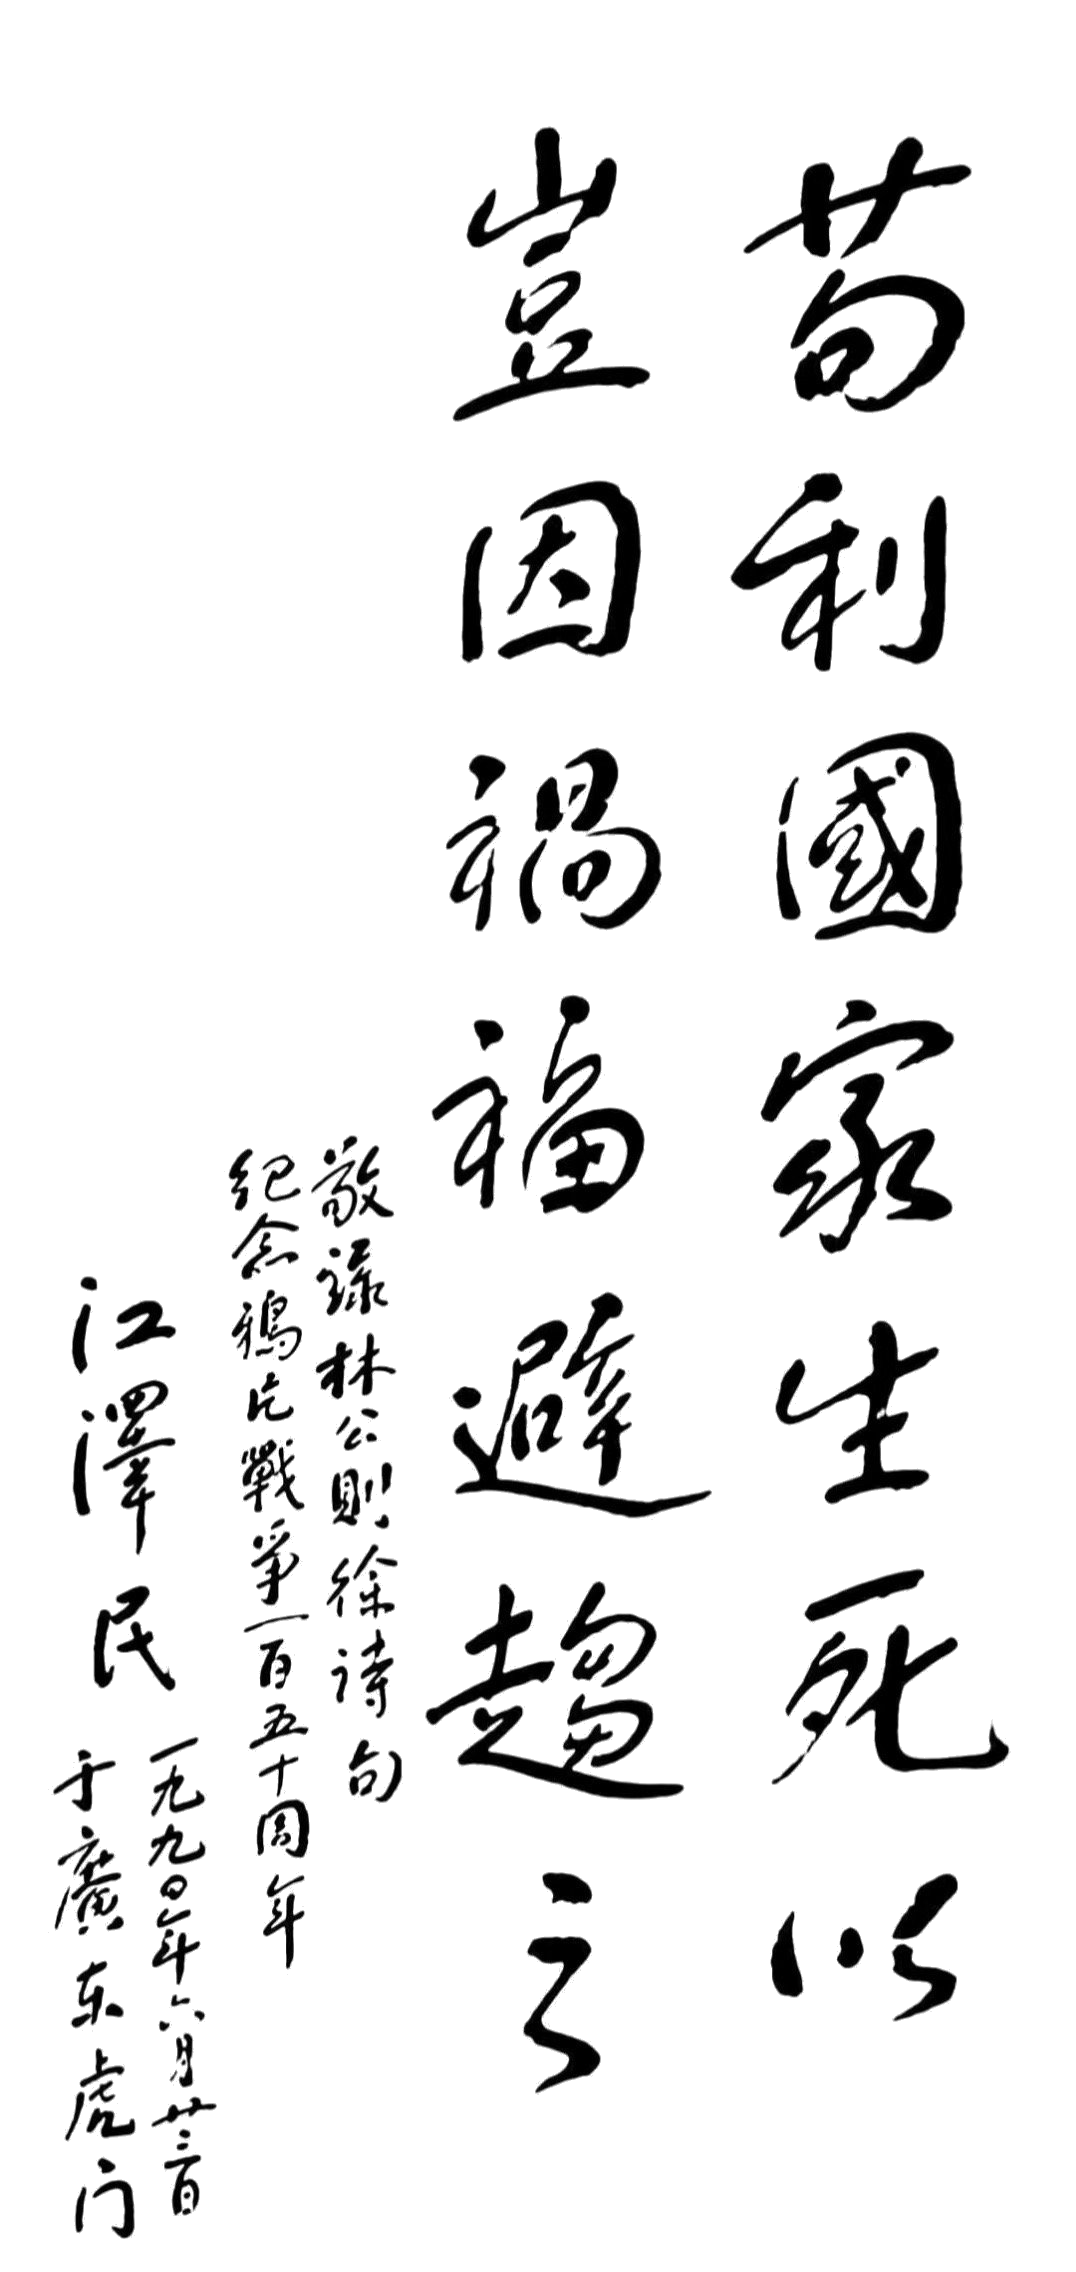 苟利國家生死以
豈因禍福避趨之
敬録林公則徐诗句
纪念鴉片戰爭一百五十周年
江澤民
一九九〇年六月廿三日
于廣东虎门